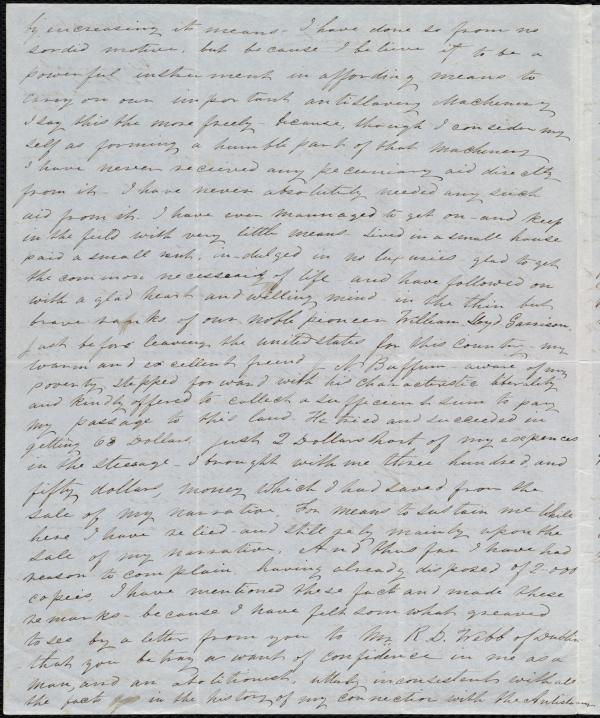 by increasing its means. I have done so from no
sordid motive, but because I believe it to be a
powerful instrument in affording means to
carry on our important antislavery Machinery
I say this the more freely - because, though I consider my
self as forming a humble part of that Machinery
I have never received any pecuniary aid directly
from it - I have never absolutely needed any such
aid from it. I have ever mannaged to get on - and keep
in the field with very little means. Lived in a small house
paid a small rent, indulged in no luxuries glad to get
the common necessaries of life - and have followed on
with a glad heart and willing mind in the thin but
brave ranks of our noble pioneer William Lloyd Garrison.
Just before leaving the united states for this country - my
warm and excellent friend J. N Buffum - aware of my
poverty stepped forward with his characteristic liberality
and kindly offered to collect a sufficient sum to pay
my passage to this land. He tried and succeeded in
getting 68 Dollars just 2 Dollars short of my expences
in the steerage - I brought with me three hundred, and
fifty dollars, money which I had saved from the
sale of my narrative. For means to sustain me while
here I have relied and still rely mainly upon the
sale of my narrative. And thus far I have had
reason to complain having already disposed of 2.000
copies, I have mentioned these fact and made these
remarks - because I have felt somwhat greaved
to see by a letter from you to Mr R. D. Webb of Dublin
that you betray a want of confidence in me as a
man, and an abolitionist, utterly inconsistent with all
the facts in the history of my connection with the Antislavery